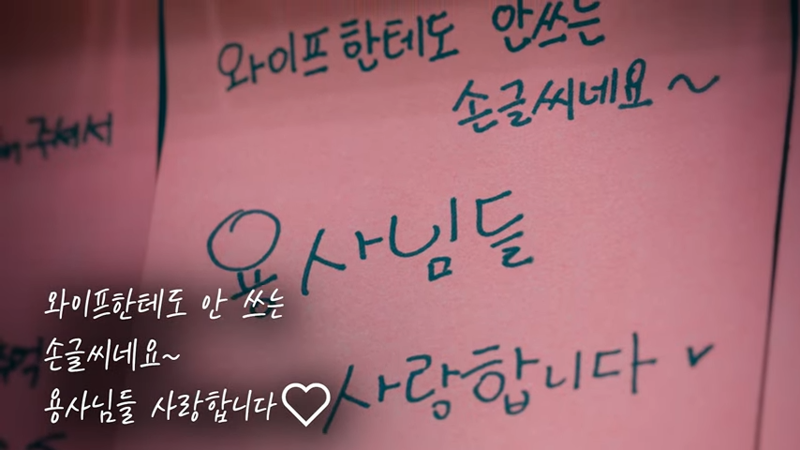 와이프한테도 안쓰는
손글씨네요~
주셔서
용사님들
사랑합니다
와이프한테도 안 쓰는
손글씨네요~
용사님들 사랑합니다♡